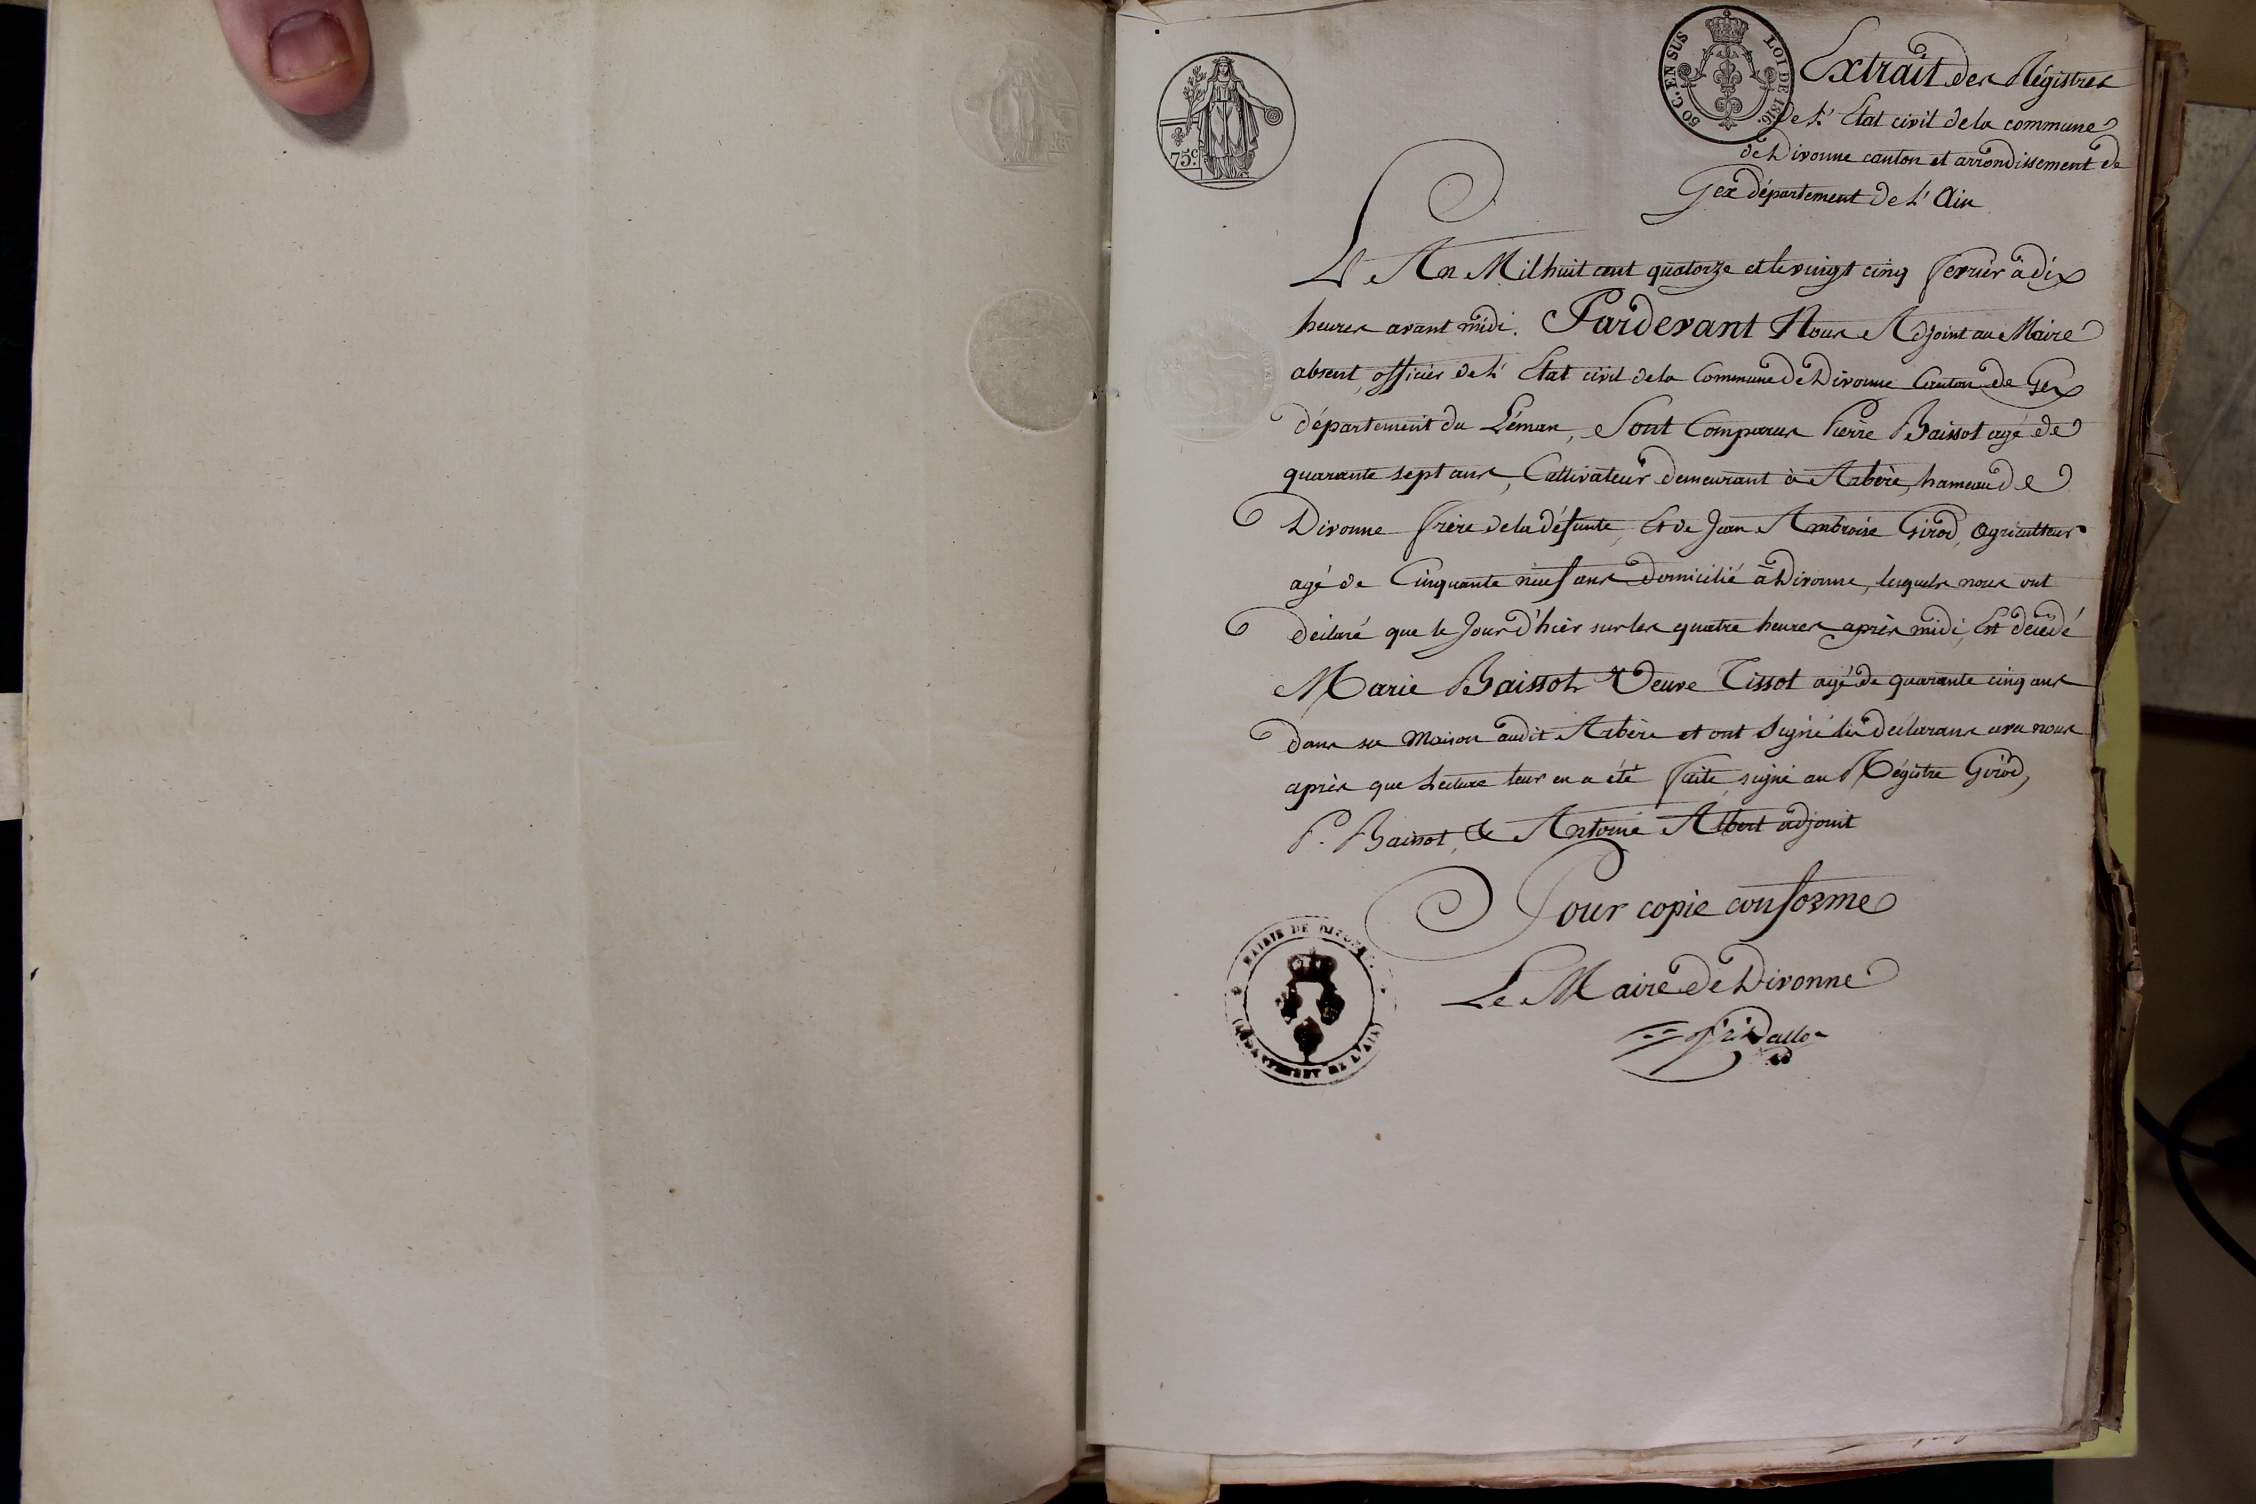 75.c
50 C. EN SUS
LOI DE 1816.
Extrait des Régistres
de L' Etat civil de la commune
de Divonne canton et arrondissement de
Gex département de L' Ain
L' An Mil huit cent quatorze et le vingt cinq fevrier à dix
heures avant midi. Pardevant Nous Adjoint au Maire
absent, officier de L' Etat civil de la Commune de Divonne Canton de Gex
département du Léman, Sont Comparus Pierre Baissot agé de
quarante sept ans, Cultivateur demeurant à Arbère, hameau de
Divonne frère de la défunte, et de Jean Ambroise Girod, Agriculteur
agé de Cinquante neuf ans domicilié à Divonne, lesquels nous ont
déclaré que le Jour d'hièr sur les quatre heures après midi, Est décédé
Marie Baissot Veuve Tissot agé de quarante cinq ans
dans sa maison audit Arbère et ont signé les déclarans avec nous
après que Lecture leur en a été faite, signé au Régistre Girod,
P. Baissot, & Antoine Albert adjoint
Pour copie conforme
Le Maire de Divonne
MAIRIE DE DIVONNE
DÉPARTEMENT DE L'AIN